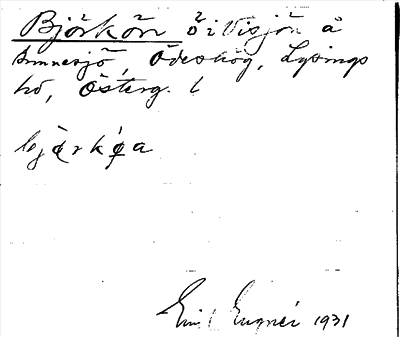 Björkön ö i Visjön å
Amnesjö, Ödeshög, Lysings
hd, Österg. l
björköa
Emil Eugnér 1931